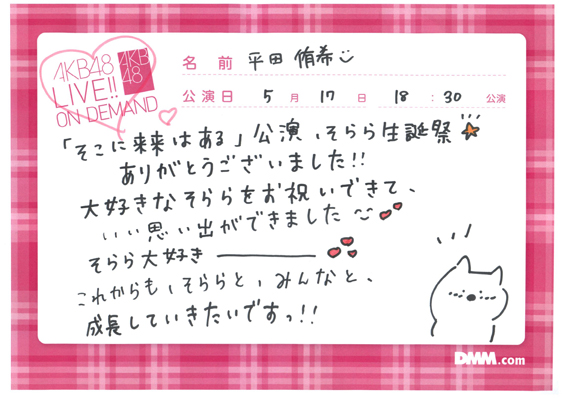 AKB48
LIVE!!
ON DEMAND
AKB
48
名前 平田 侑希
公演日 5月17日 18:30 公演
「そこに未来はある」公演、そらら生誕祭
ありがとうございました!!
大好きなそららをお祝いできて、
いい思い出ができました
そらら大好き
これからも、そららと、みんなと、
成長していきたいですっ!!
DMM.com